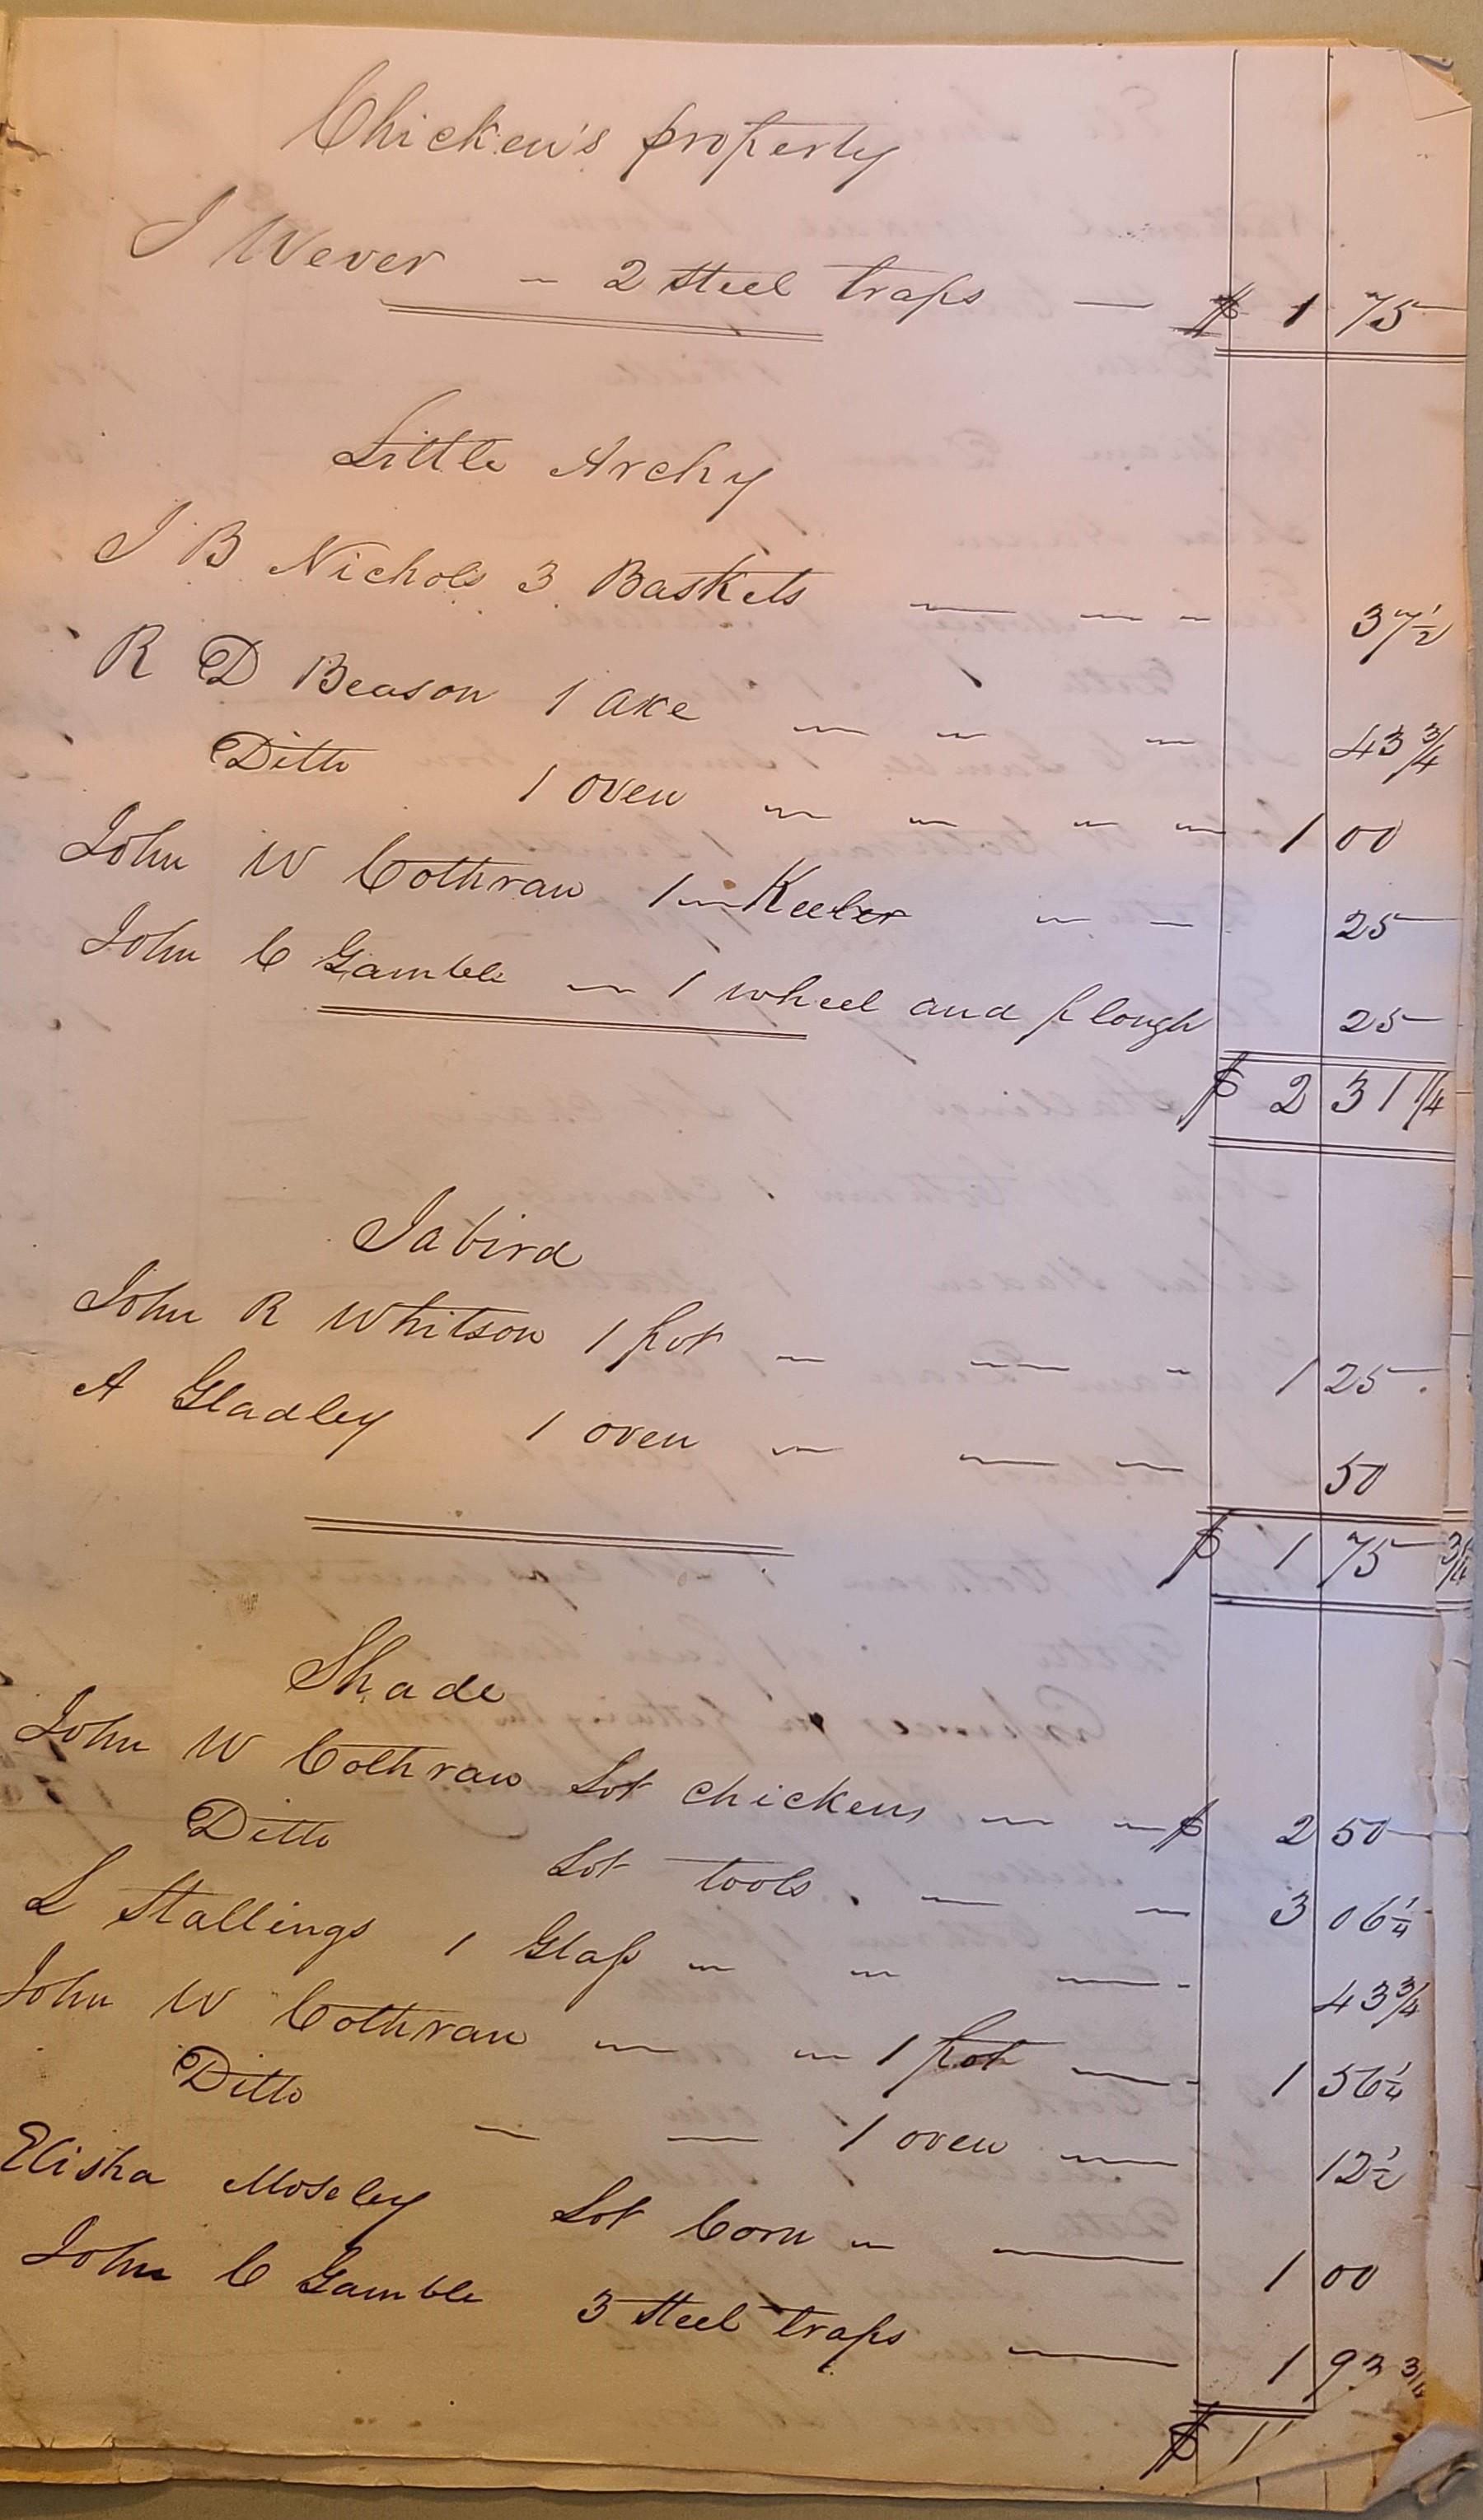 Chicken's property
J Wever - 2 steel traps - $ 1 75
Little Archy
J B Nichols 3 Baskets - - - 37 1/2
R D Beason 1 axe - - - 43 3/4
Ditto 1 oven - - - - 1 00
John W Cothran 1 - Keeler - - 25
John C Gamble - 1 wheel and plough 25
$ 2 31 1/4
Jabird
John R Whitson 1 pot - - - 1 25
A Gladley 1 oven - - - 50
$ 1 75 3/4
Shade
John W Cothran Lot chickens - - $ 2 50
Ditto Lot tools - - 3 06 1/4
L Stallings 1 Glass - - - 43 3/4
John W Cothran - - 1 pot - 1 56 1/4
Ditto - - 1 oven - 12 1/2
Elisha Moseley Lot Corn - - 1 00
John C Gamble 3 steel traps - 1 93 3/4
$ 1